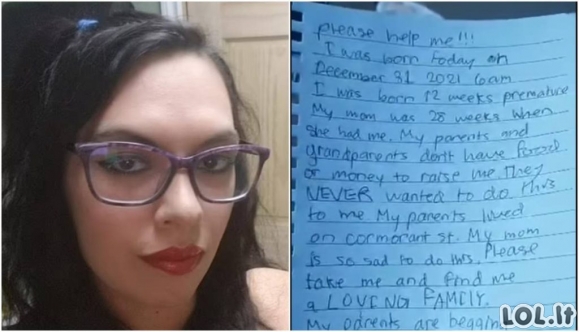 please help me!!!
I was born today on
December 31 2021 6am
I was born 12 weeks premature
My mom was 28 weeks when
she had me. My parents and
grandparents don't have food
or money to raise me They
NEVER wanted to do this
to me My parents lived
on cormorant st. My mom
is so sad to do this. Please
take me and find me
a LOVING FAMILY.
My parents are begging
LOL.lt